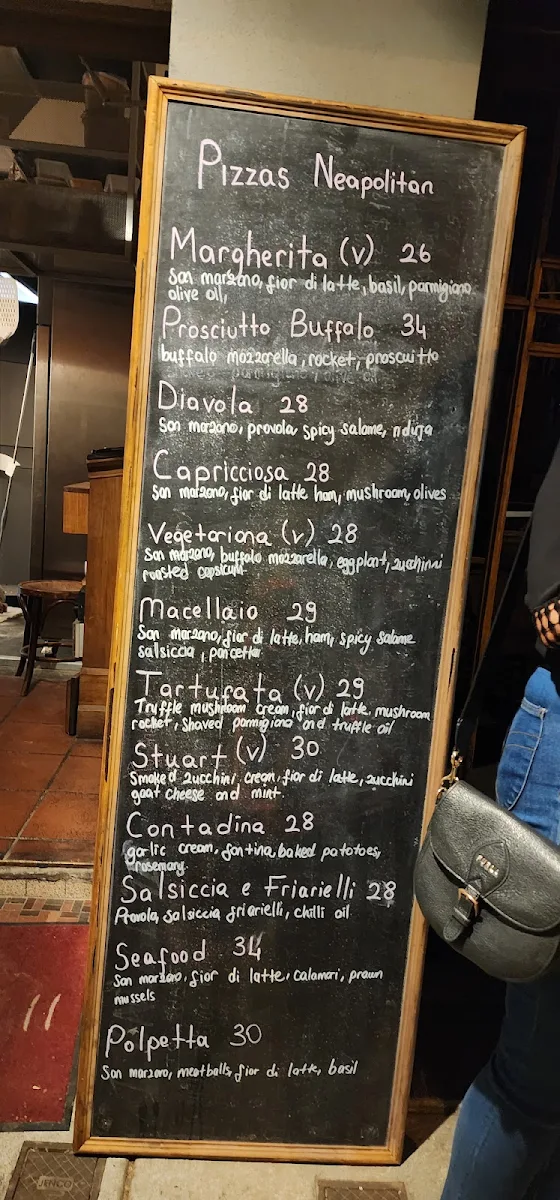 Pizzas Neapolitan
Margherita (v) 26
San marzano, fior di latte, basil, parmigiano
olive oil,
Prosciutto Buffalo 34
buffalo mozzarella, rocket, proscuitto
parmigiano, olive oil
Diavola 28
San marzano, provola, spicy salame, nduja
Capricciosa 28
San marzano, fior di latte ham, mushroom, olives
Vegetariana (v) 28
San marzano, buffalo mozzarella, eggplant, zucchini
roasted capsicum
Macellaio 29
San marzano, fior di latte, ham, spicy salame
salsiccia, pancetta
Tartufata (v) 29
Truffle mushroom cream, fior di latte, mushroom
rocket, shaved parmigiano and truffle oil
Stuart (v) 30
Smoked zucchini cream, fior di latte, zucchini
goat cheese and mint
Contadina 28
garlic cream, fontina, baked patotoes,
rosemary
Salsiccia e Friarielli 28
Provola, salsiccia friarielli, chilli oil
Seafood 34
San marzano, fior di latte, calamari, prawn
mussels
Polpetta 30
San marzano, meatballs, fior di latte, basil
JENCO